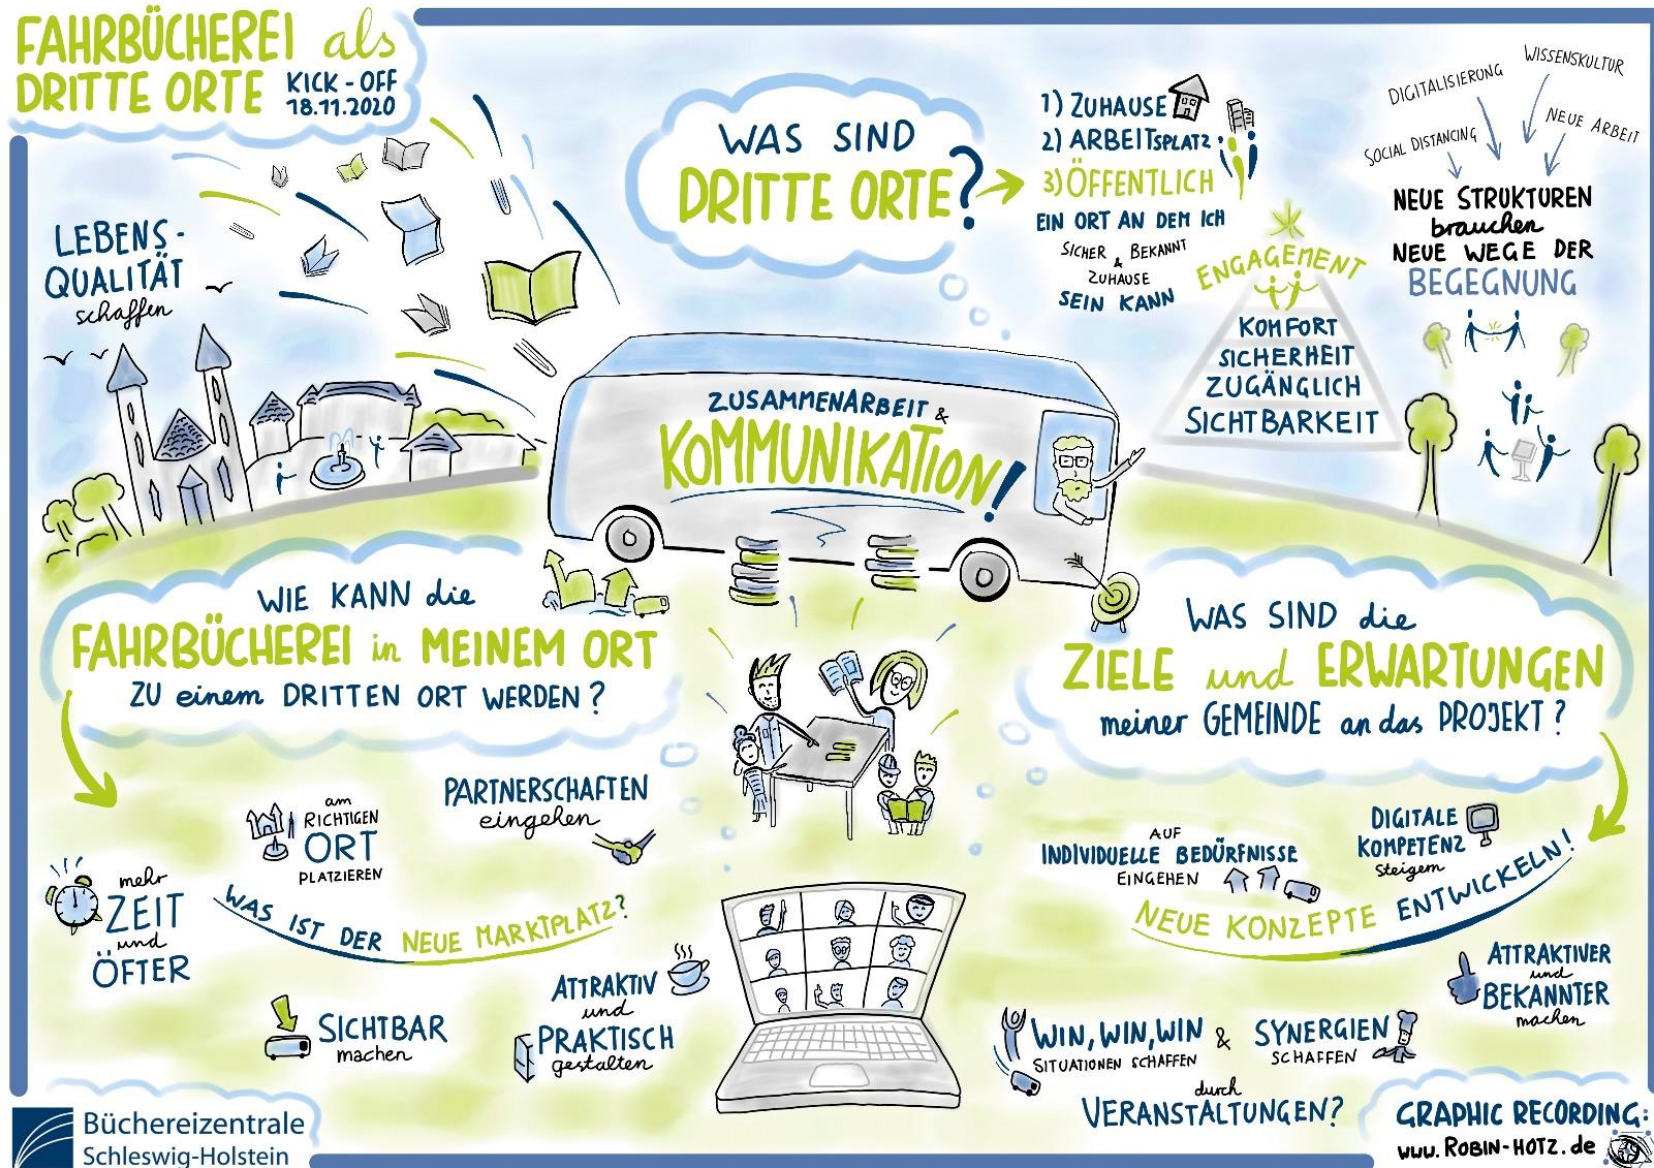 FAHRBÜCHEREI als
DRITTE ORTE KICK-OFF
18.11.2020
LEBENS-
QUALITÄT
schaffen
WAS SIND
DRITTE ORTE?
1) ZUHAUSE
2) ARBEITSPLATZ
3) ÖFFENTLICH
EIN ORT AN DEM ICH
SICHER & BEKANNT
ZUHAUSE
SEIN KANN
ENGAGEMENT
KOMFORT
SICHERHEIT
ZUGÄNGLICH
SICHTBARKEIT
SOCIAL DISTANCING
DIGITALISIERUNG
WISSENSKULTUR
NEUE ARBEIT
NEUE STRUKTUREN
brauchen
NEUE WEGE DER
BEGEGNUNG
ZUSAMMENARBEIT &
KOMMUNIKATION!
WIE KANN die
FAHRBÜCHEREI in MEINEM ORT
ZU einem DRITTEN ORT WERDEN?
mehr
ZEIT
und
ÖFTER
am
RICHTIGEN
ORT
PLATZIEREN
PARTNERSCHAFTEN
eingehen
WAS IST DER NEUE MARKTPLATZ?
SICHTBAR
machen
ATTRAKTIV
und
PRAKTISCH
gestalten
WAS SIND die
ZIELE und ERWARTUNGEN
meiner GEMEINDE an das PROJEKT?
AUF
INDIVIDUELLE BEDÜRFNISSE
EINGEHEN
DIGITALE
KOMPETENZ
steigern
NEUE KONZEPTE ENTWICKELN!
ATTRAKTIVER
und
BEKANNTER
machen
WIN, WIN, WIN & SYNERGIEN
SITUATIONEN SCHAFFEN SCHAFFEN
durch
VERANSTALTUNGEN?
Büchereizentrale
Schleswig-Holstein
GRAPHIC RECORDING:
www.ROBIN-HOTZ.de